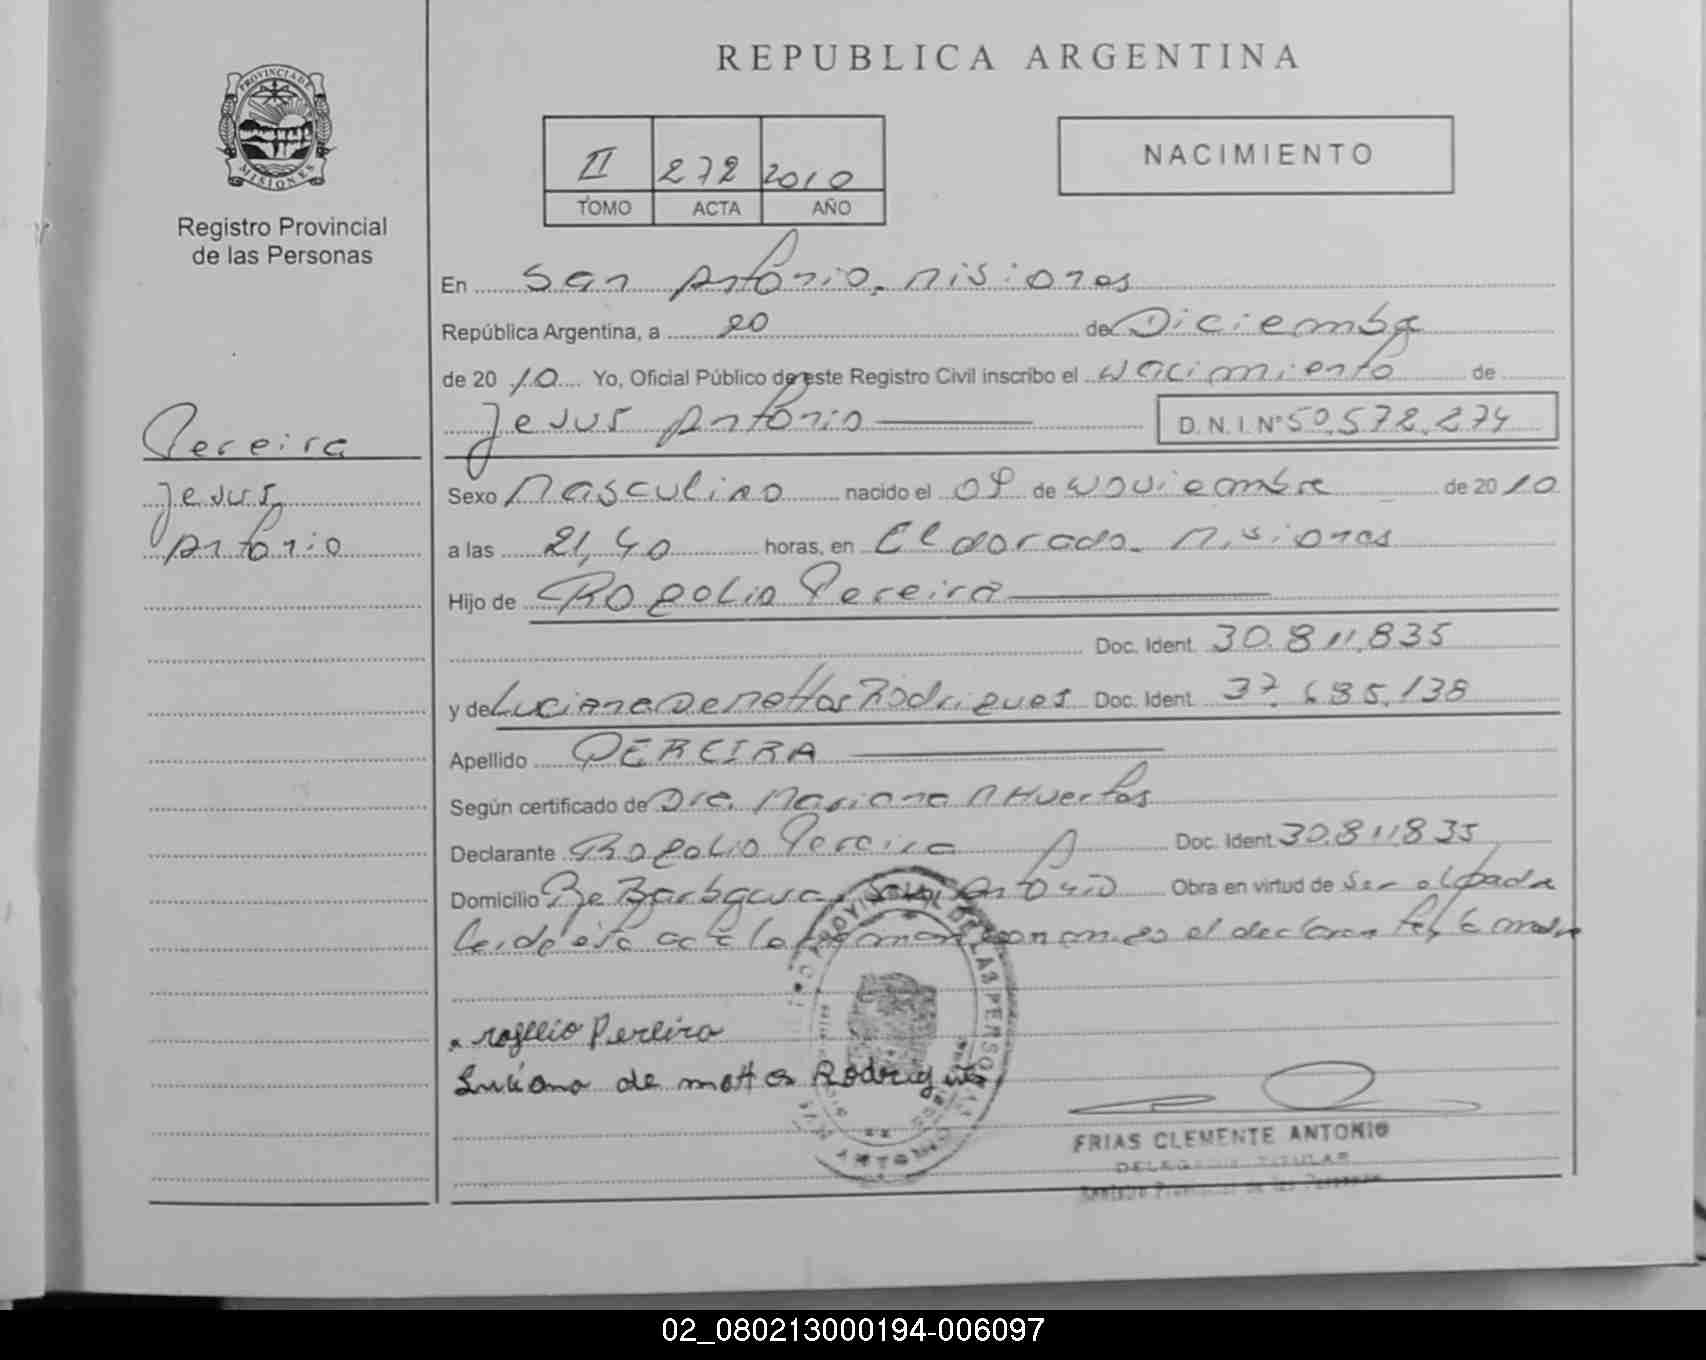 REPUBLICA ARGENTINA
PROVINCIA DE MISIONES
Registro Provincial
de las Personas
II 272 2010
TOMO ACTA AÑO
NACIMIENTO
En San Antonio. Misiones
República Argentina, a 20 de Diciembre
de 20 10 Yo, Oficial Público de este Registro Civil inscribo el Nacimiento de
Jesus Antonio D.N.I. Nº 50.572.274
Pereira
Jesus
Antonio
Sexo Masculino nacido el 09 de Noviembre de 20 10
a las 21,40 horas, en Eldorado. Misiones
Hijo de Rogelio Pereira
Doc. Ident. 30.811.835
y de Luciana De Mattos Rodrigues Doc. Ident. 37.685.138
Apellido PEREIRA
Según certificado de Dra. Mariana M Huertas
Declarante Rogelio Pereira Doc. Ident. 30.811.835
Domicilio Be Barbaura San Antonio Obra en virtud de Ser el padre
Leida esta acta la firman con migo el declarante y la madre
rogelio Pereira
Luciana de mattos Rodrigues
FRIAS CLEMENTE ANTONIO
DELEGADO TITULAR
Registro Provincial de las Personas
02_080213000194-006097